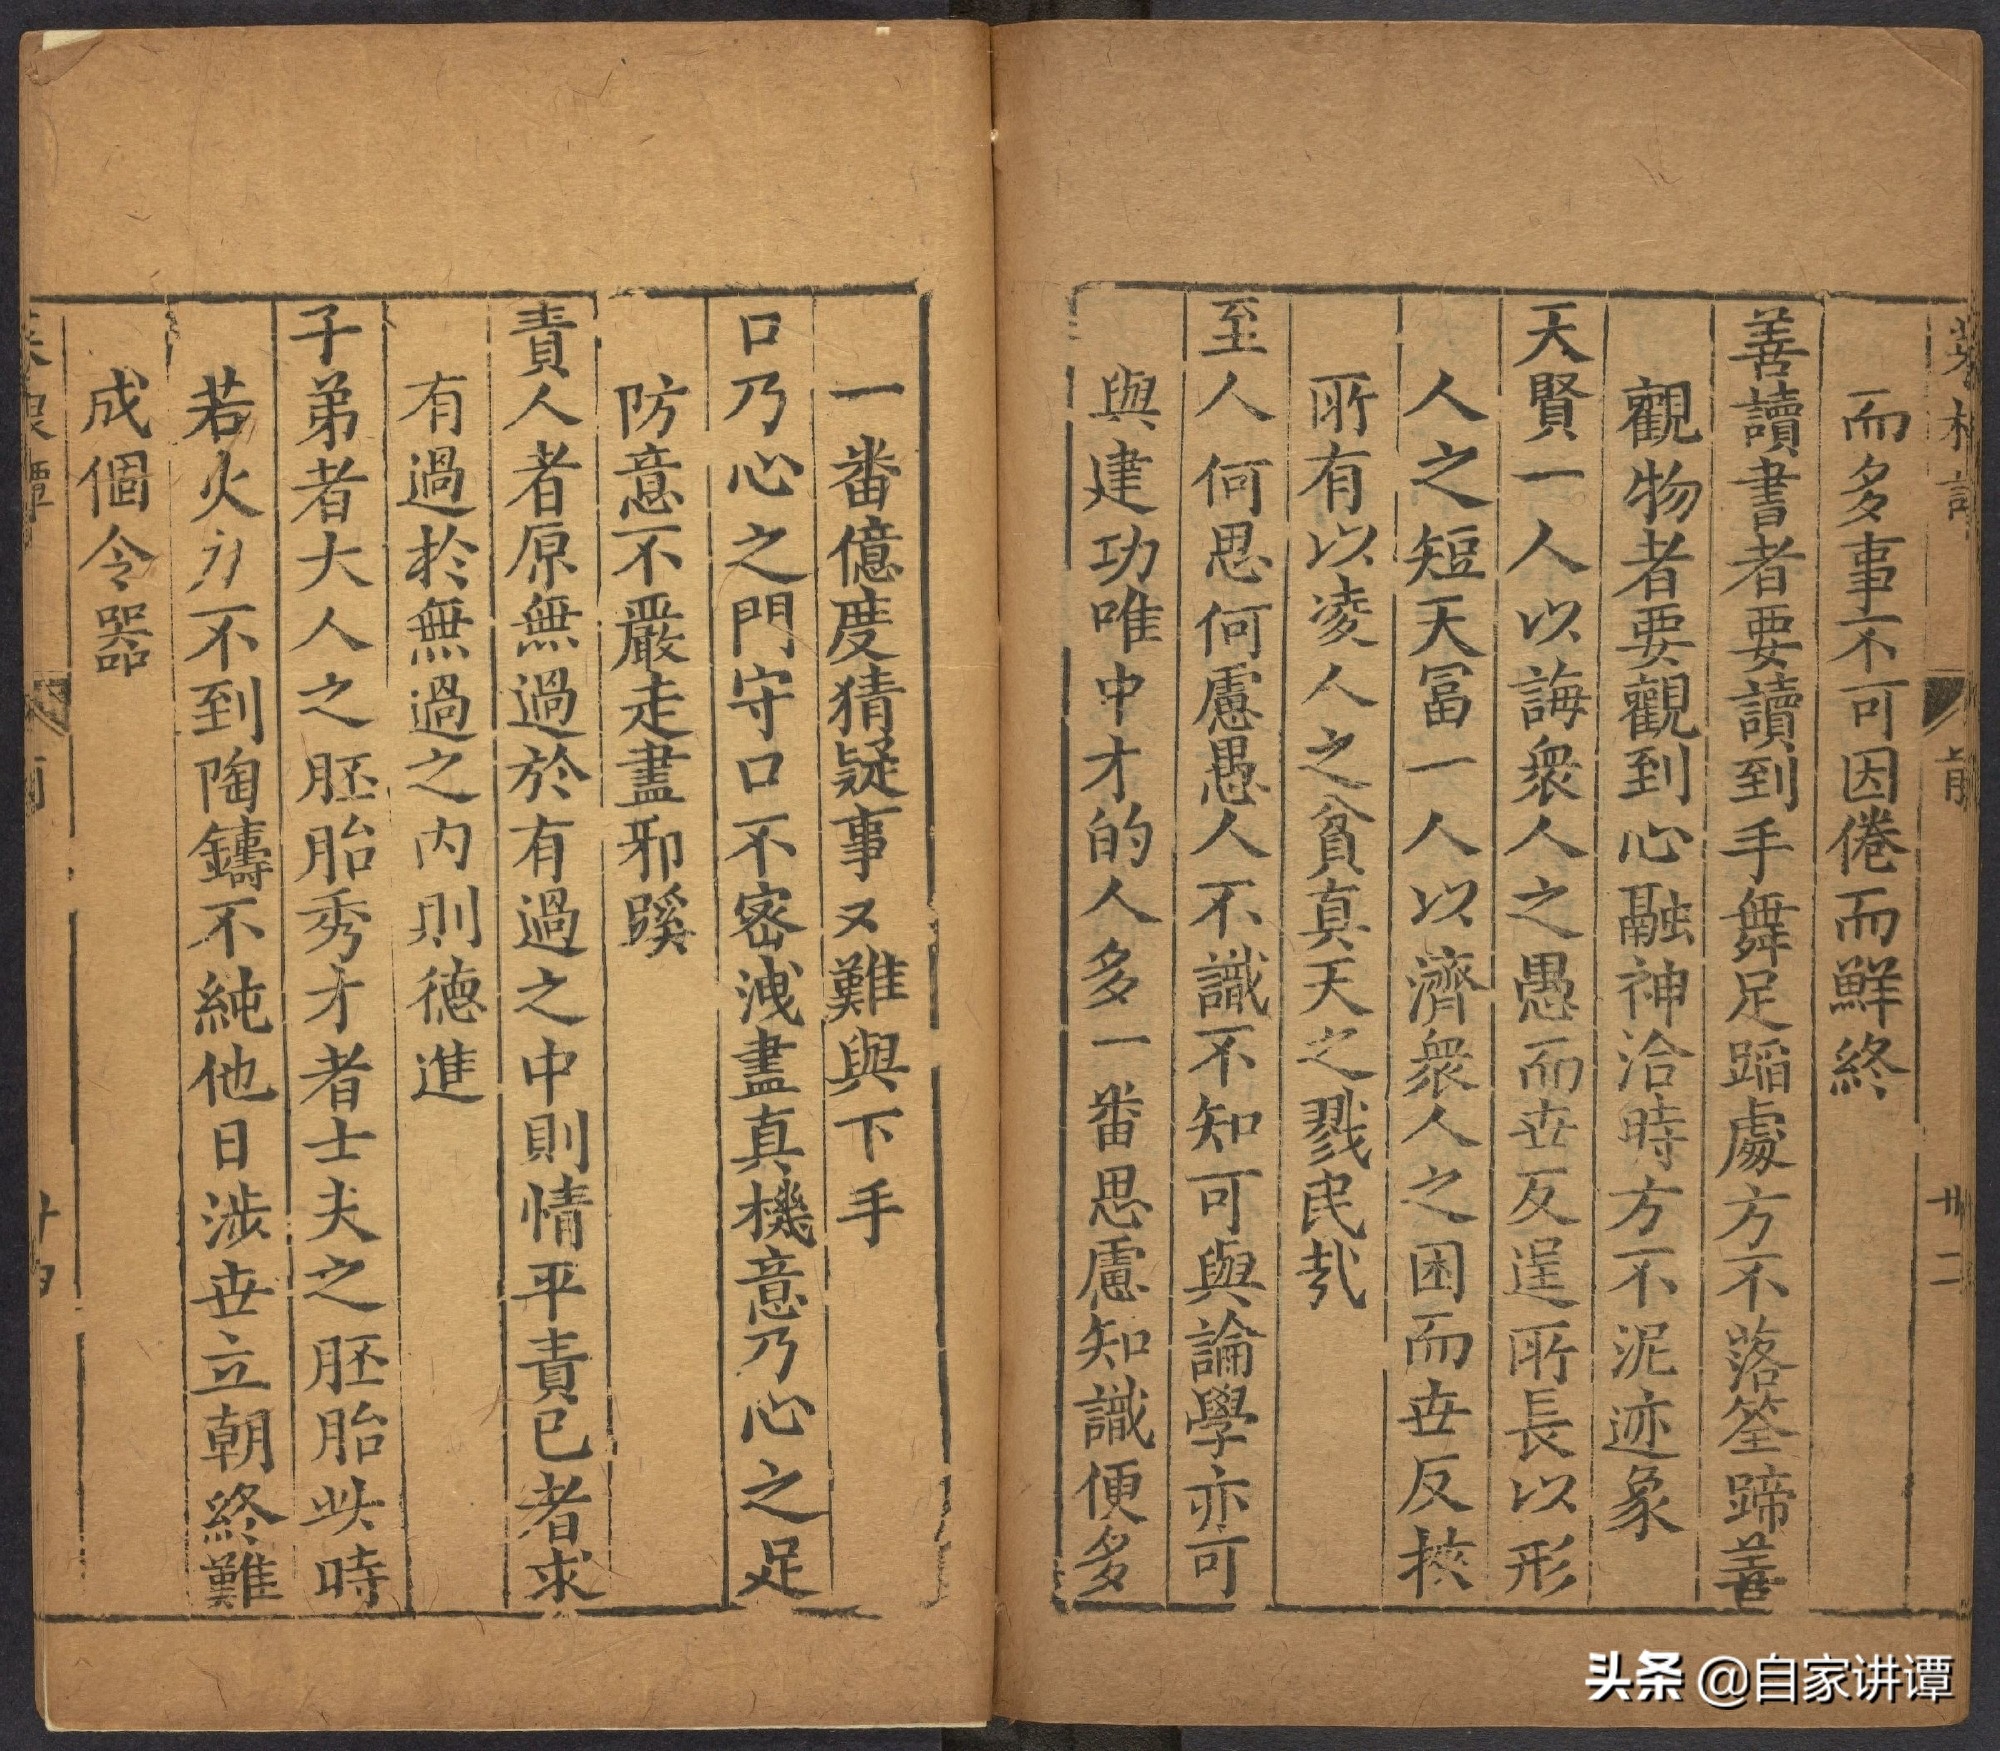 而多事不可因倦而鮮終
善讀書者要讀到手舞足蹈處方不落筌蹄善
觀物者要觀到心融神洽時方不泥迹象
天賢一人以誨衆人之愚而世反逞所長以形
人之短天富一人以濟衆人之困而世反挾
所有以凌人之貧真天之戮民哉
至人何思何慮愚人不識不知可與論學亦可
與建功唯中才的人多一番思慮知識便多
一番億度猜疑事又難與下手
口乃心之門守口不密洩盡真機意乃心之足
防意不嚴走盡邪蹊
責人者原無過於有過之中則情平責已者求
有過於無過之內則德進
子弟者大人之胚胎秀才者士夫之胚胎此時
若火力不到陶鑄不純他日涉世立朝終難
成個令器
頭条 @自家讲谭